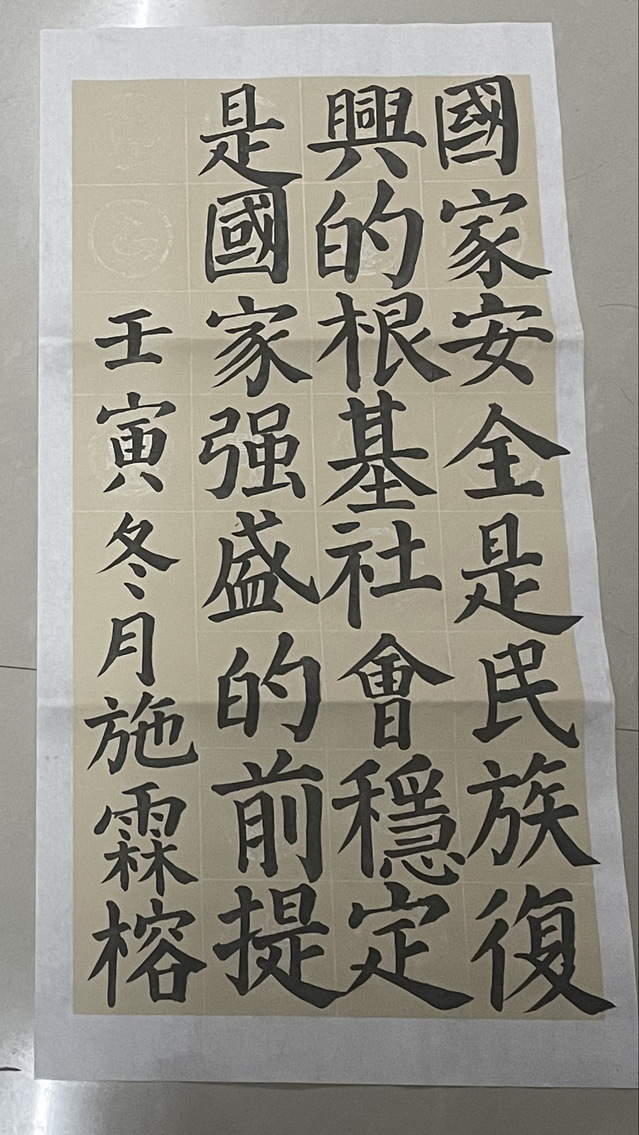 國家安全是民族復
興的根基社會穩定
是國家强盛的前提
壬寅冬月施霖榕